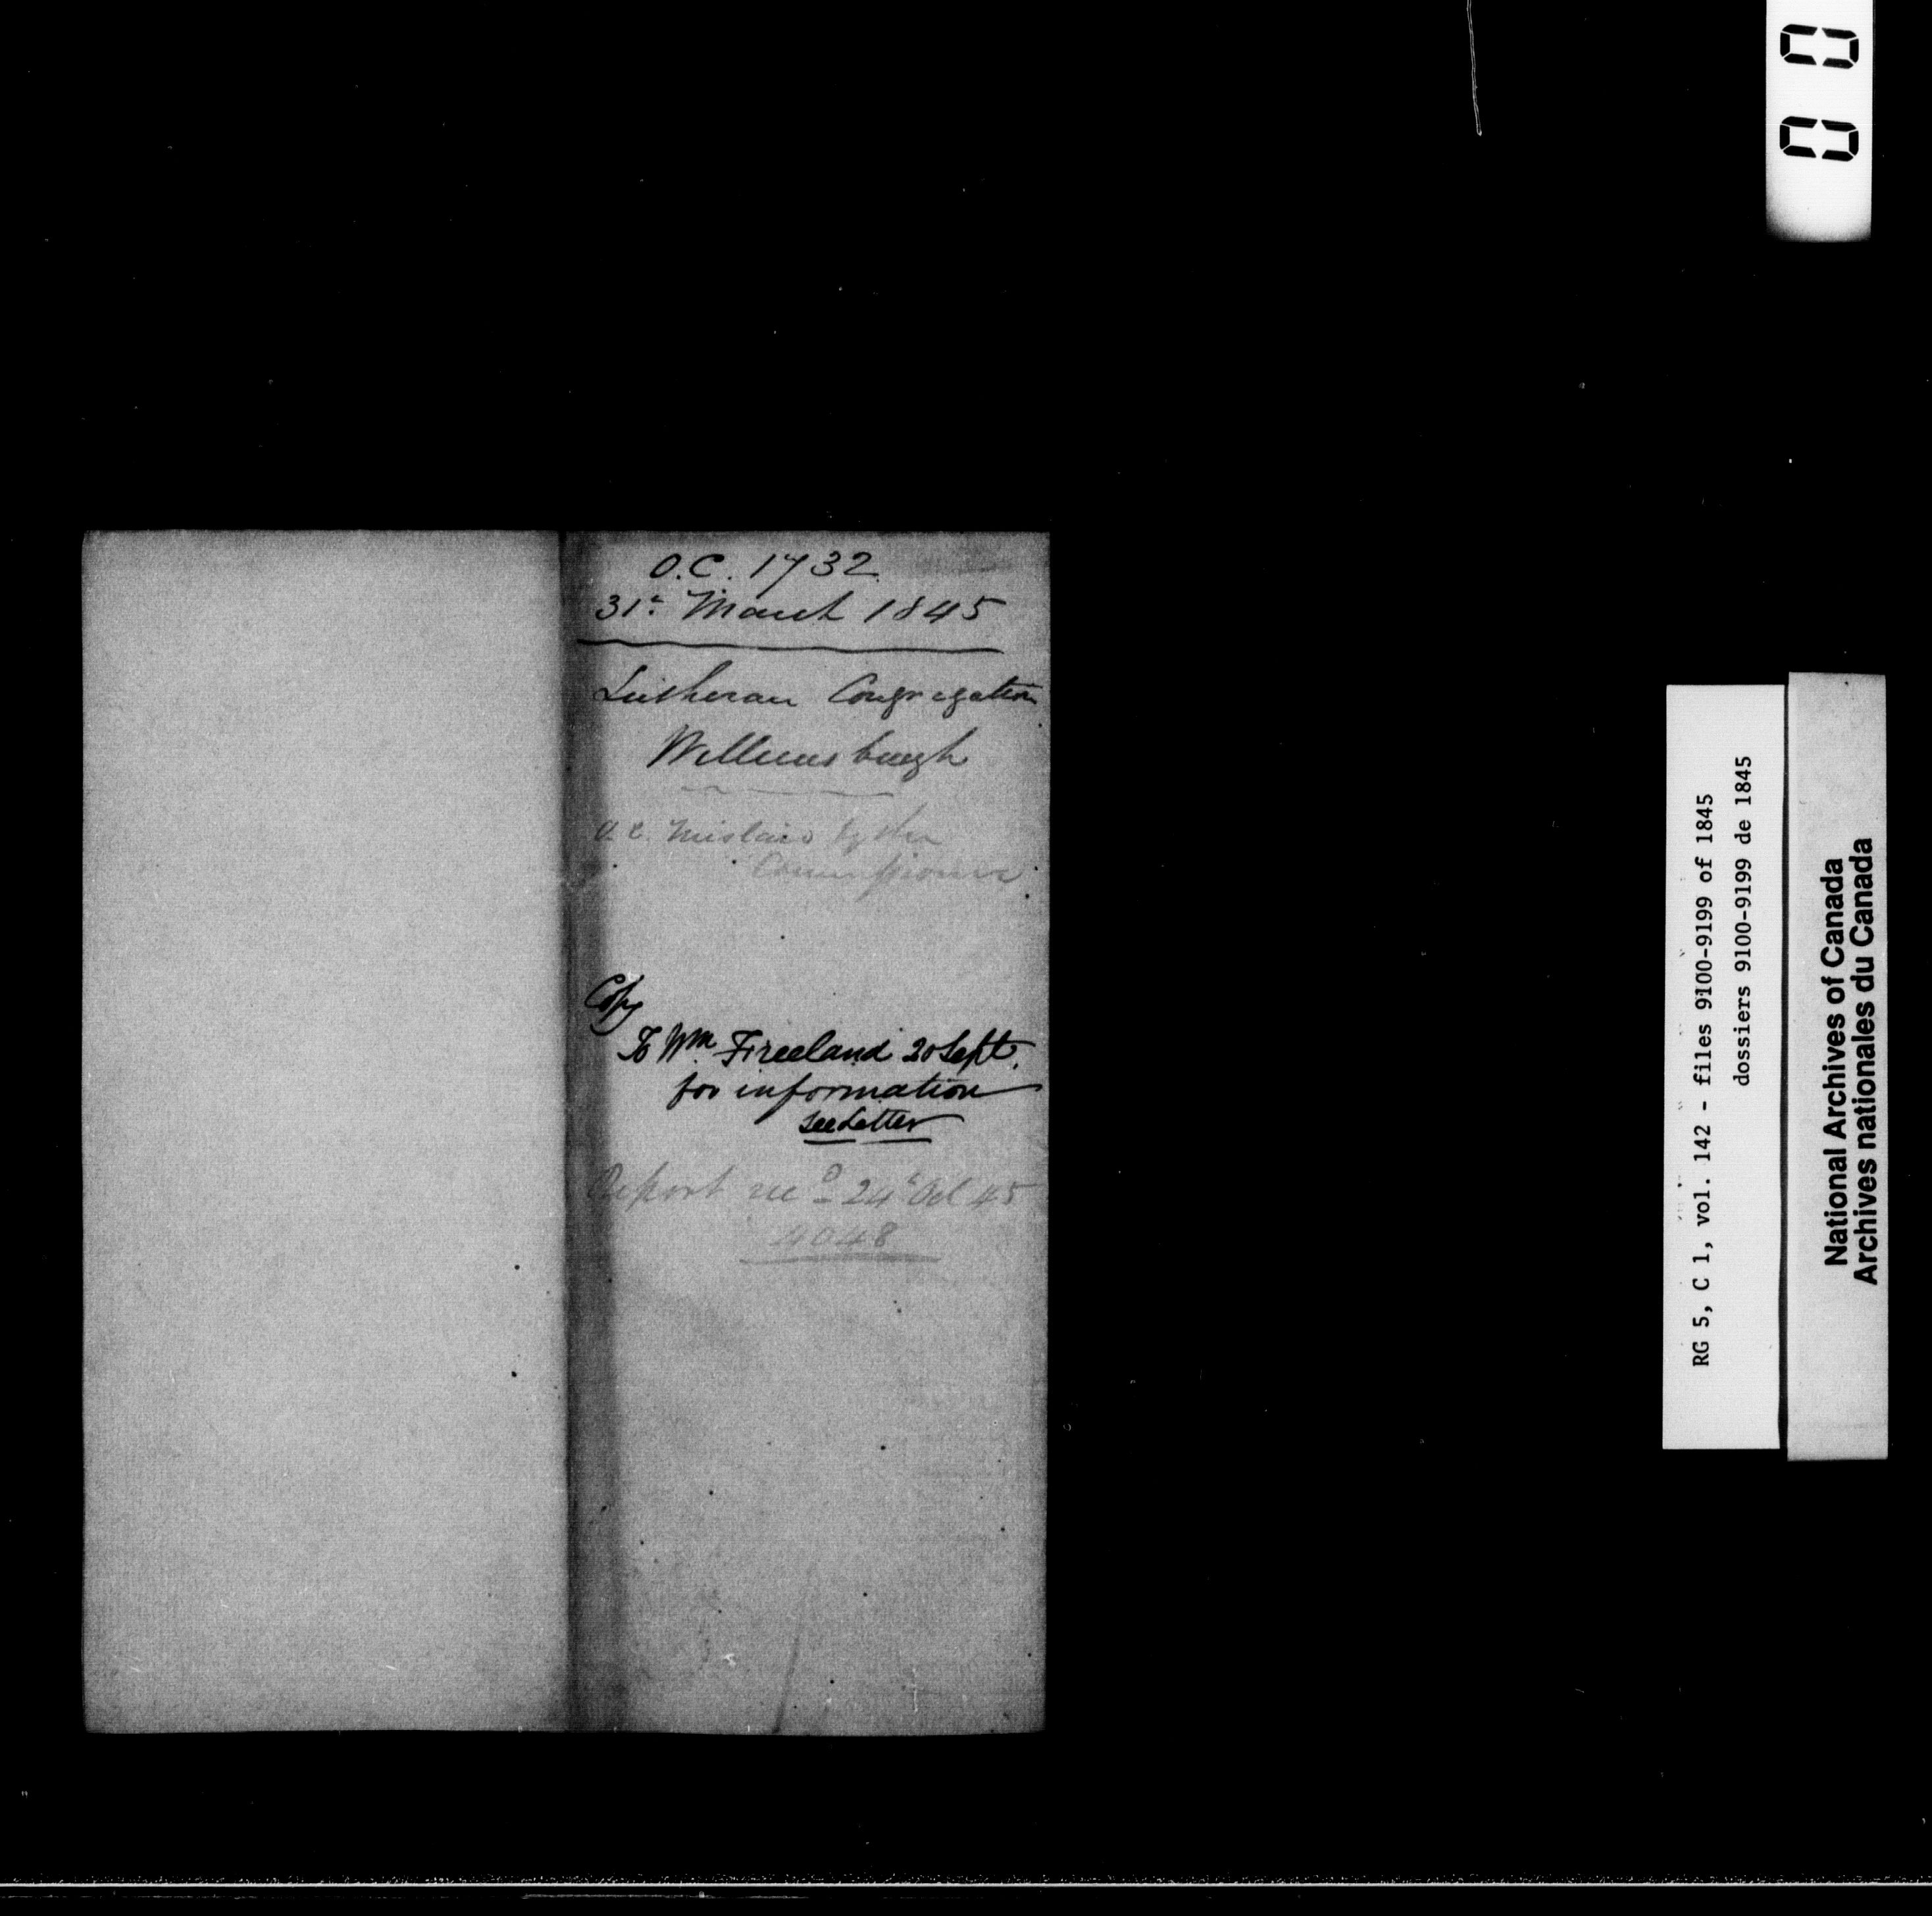 O.C. 1732
31st March 1845
Lutheran Congregation
Williamsburgh
O.C.
Commissioner
Copy
To Wm Freeland 20 Sept.
for information
see Letter
Report recd 24th Oct 45
9048
RG 5, C 1, vol. 142 - files 9100-9199 of 1845
dossiers 9100-9199 de 1845
National Archives of Canada
Archives nationales du Canada
00